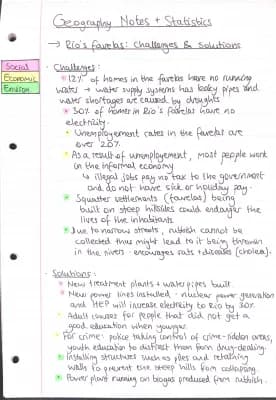 Geography Notes + Statistics
→ Rio's favelas: Challenges & Solutions
Social
Economic
Environ.
· Challenges:
* 12% of homes in the favelas have no running
water → water supply systems has leaky pipes and
water shortages are caused by droughts
* 30% of homes in Rio's favelas have no
electricity.
· Unemployement rates in the favelas are
over 20%
· As a result of unemployement, most people work
in the informal economy
↳ illegal jobs pay no tax to the government
and do not have sick or holiday pay.
* Squatter settlements (favelas) being
built on steep hillsides could endanger the
lives of the inhabitants
· Due to narrow streets, rubbish cannot be
collected thus might lead to it being thrown
in the rivers · encourages rats + diseases (cholera).
· Solutions:
* New treatment plants + water pipes built.
* New power lines installed, nuclear power generation
and HEP will increase electricity to Rio by 30%
· Adult courses for people that did not get a
good education when younger
· For crime: police taking control of crime-ridden areas,
youth education to distract them from drug-dealing.
* Installing structures such as piles and retaining
walls to prevent the steep hills from collapsing.
* Power plant running on biogas produced from rubbish.